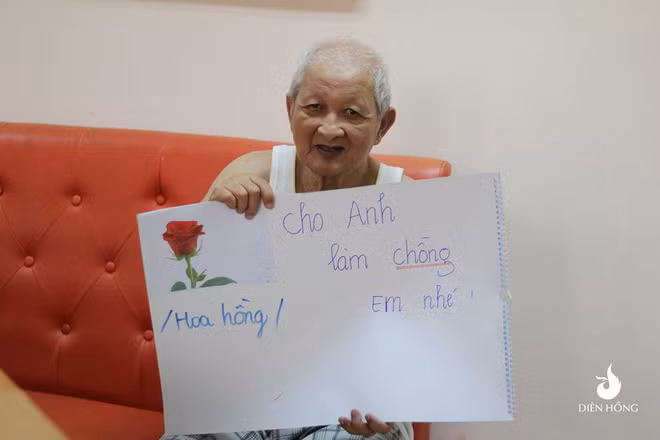 Cho Anh
làm chồng
Em nhé!
/Hoa hồng/
DIÊN HỒNG